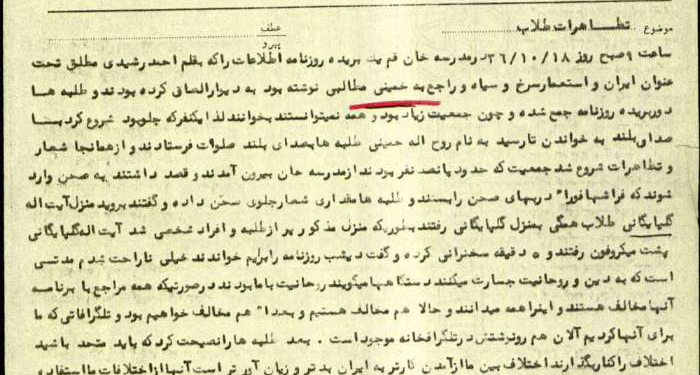 موضوع تظاهرات طلاب عطف
پیرو
ساعت ۹ صبح روز ۳۶/۱۰/۱۸ در مدرسه خان قم یک بریده روزنامه اطلاعات را که بقلم احمد رشیدی مطلق تحت
عنوان ایران و استعمار سرخ و سیاه و راجع به خمینی مطالبی نوشته بود به دیوار الصاق کرده بودند و طلبه ها
دور بریده روزنامه جمع شده و چون جمعیت زیاد بود و همه نمیتوانستند بخوانند لذا یکنفر که جلو بود شروع کرد با
صدای بلند به خواندن تا رسید به نام روح اله خمینی طلبه ها بصدای بلند صلوات فرستادند و از همانجا شعار
و تظاهرات شروع شد جمعیت که حدود پانصد نفر بودند از مدرسه خان بیرون آمدند و قصد داشتند به صحن وارد
شوند که فراشها فورا" دربهای صحن را بستند و طلبه ها مقداری شعار جلوی صحن داده و گفتند بروید منزل آیت اله
گلپایگانی طلاب همگی بمنزل گلپایگانی رفتند بطوریکه منزل مذکور پر از طلبه و افراد شخصی شد آیت اله گلپایگانی
پشت میکروفون رفتند و ۵ دقیقه سخنرانی کرده و گفت دیشب روزنامه را برایم خواندند خیلی ناراحت شدم مدتی
است که به دین و روحانیت جسارت میکنند دستگاهها میگویند روحانیت با ما بودند در صورتیکه همه مراجع با برنامه
آنها مخالف هستند و اینرا همه میدانند و حالا هم مخالف هستیم و بعدا" هم مخالف خواهیم بود و تلگرافاتی که ما
برای آنها کردیم آلان هم رونوشتش در تلگرافخانه موجود است . بعد طلبه ها را نصیحت کرد که باید متحد باشید
اختلاف را کنار بگذارید اختلاف بین ما از آمدن تارتر به ایران بدتر و زیان آور تر است آنها از اختلافات ما استفاده